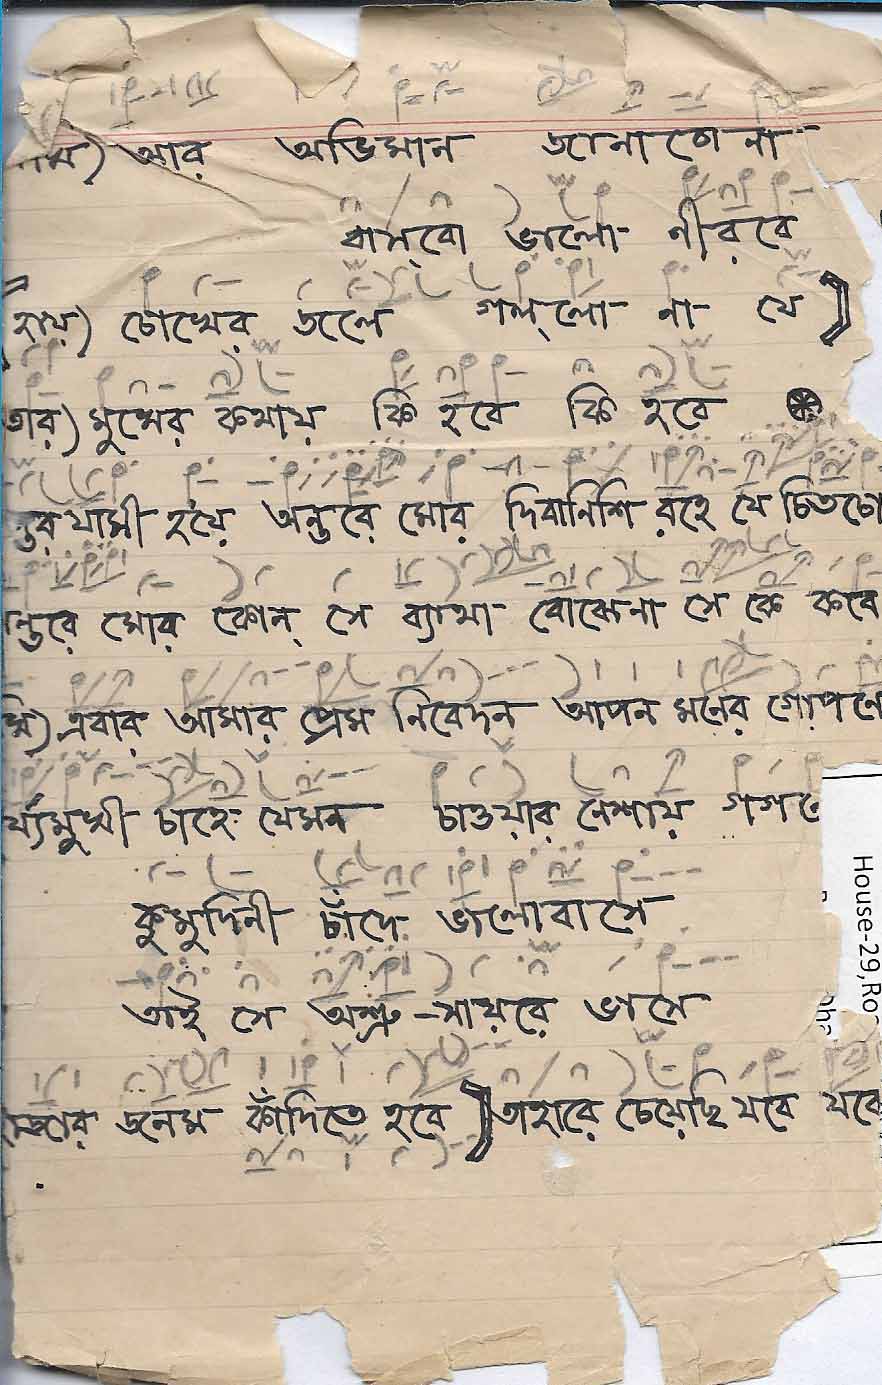 আর অভিমান জানাবো না
বাস্‌বো ভালো নীরবে
হায়) চোখের জলে গল্‌লো না যে
তার) মুখের কথায় কি হবে কি হবে
ন্তরযামী হয়ে অন্তরে মোর দিবানিশি রহে যে চিতচো
ন্তরে মোর কোন্‌ সে ব্যাথা বোঝেনা সে কে কবে
এবার আমার প্রেম নিবেদন আপন মনের গোপনে
র্য্যমুখী চাহে যেমন চাওয়ার নেশায় গগনে
কুমুদিনী চাঁদে ভালোবাসে
তাই সে অশ্রু-সায়রে ভাসে
জনম কাঁদিতে হবে তাহারে চেয়েছি যবে যবে
House-29,Ro